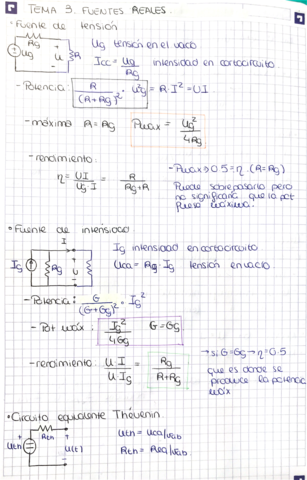 TEMA 3. FUENTES REALES.
• Fuente de tensión
Rg I
Ug U R
Ug tensión en el vacío
Icc = Ug/Rg intensidad en cortocircuito
- Potencia: R/(R+Rg)² · Ug² = R·I² = UI
- máxima R = Rg Pmax = Ug²/4Rg
- rendimiento:
η = UI/UgI = R/(Rg+R)
- Pmax → 0.5 = η (R = Rg)
Puede sobrepasarlo pero
no significaría que la pot
fuese máxima.
• Fuente de intensidad
I
Ig Rg U
Ig intensidad en cortocircuito
Uca = Rg · Ig tensión en vacío
- Potencia: G/(G+Gg)² · Ig²
- Pot máx: Ig²/4Gg G = Gg
- rendimiento: U·I/U·Ig = Rg/(R+Rg)
→ si G = Gg → η = 0.5
que es donde se
produce la potencia
máx
• Circuito equivalente Thévenin.
Rth I
Uth U(t)
Uth = Uca/ab
Rth = Req/ab